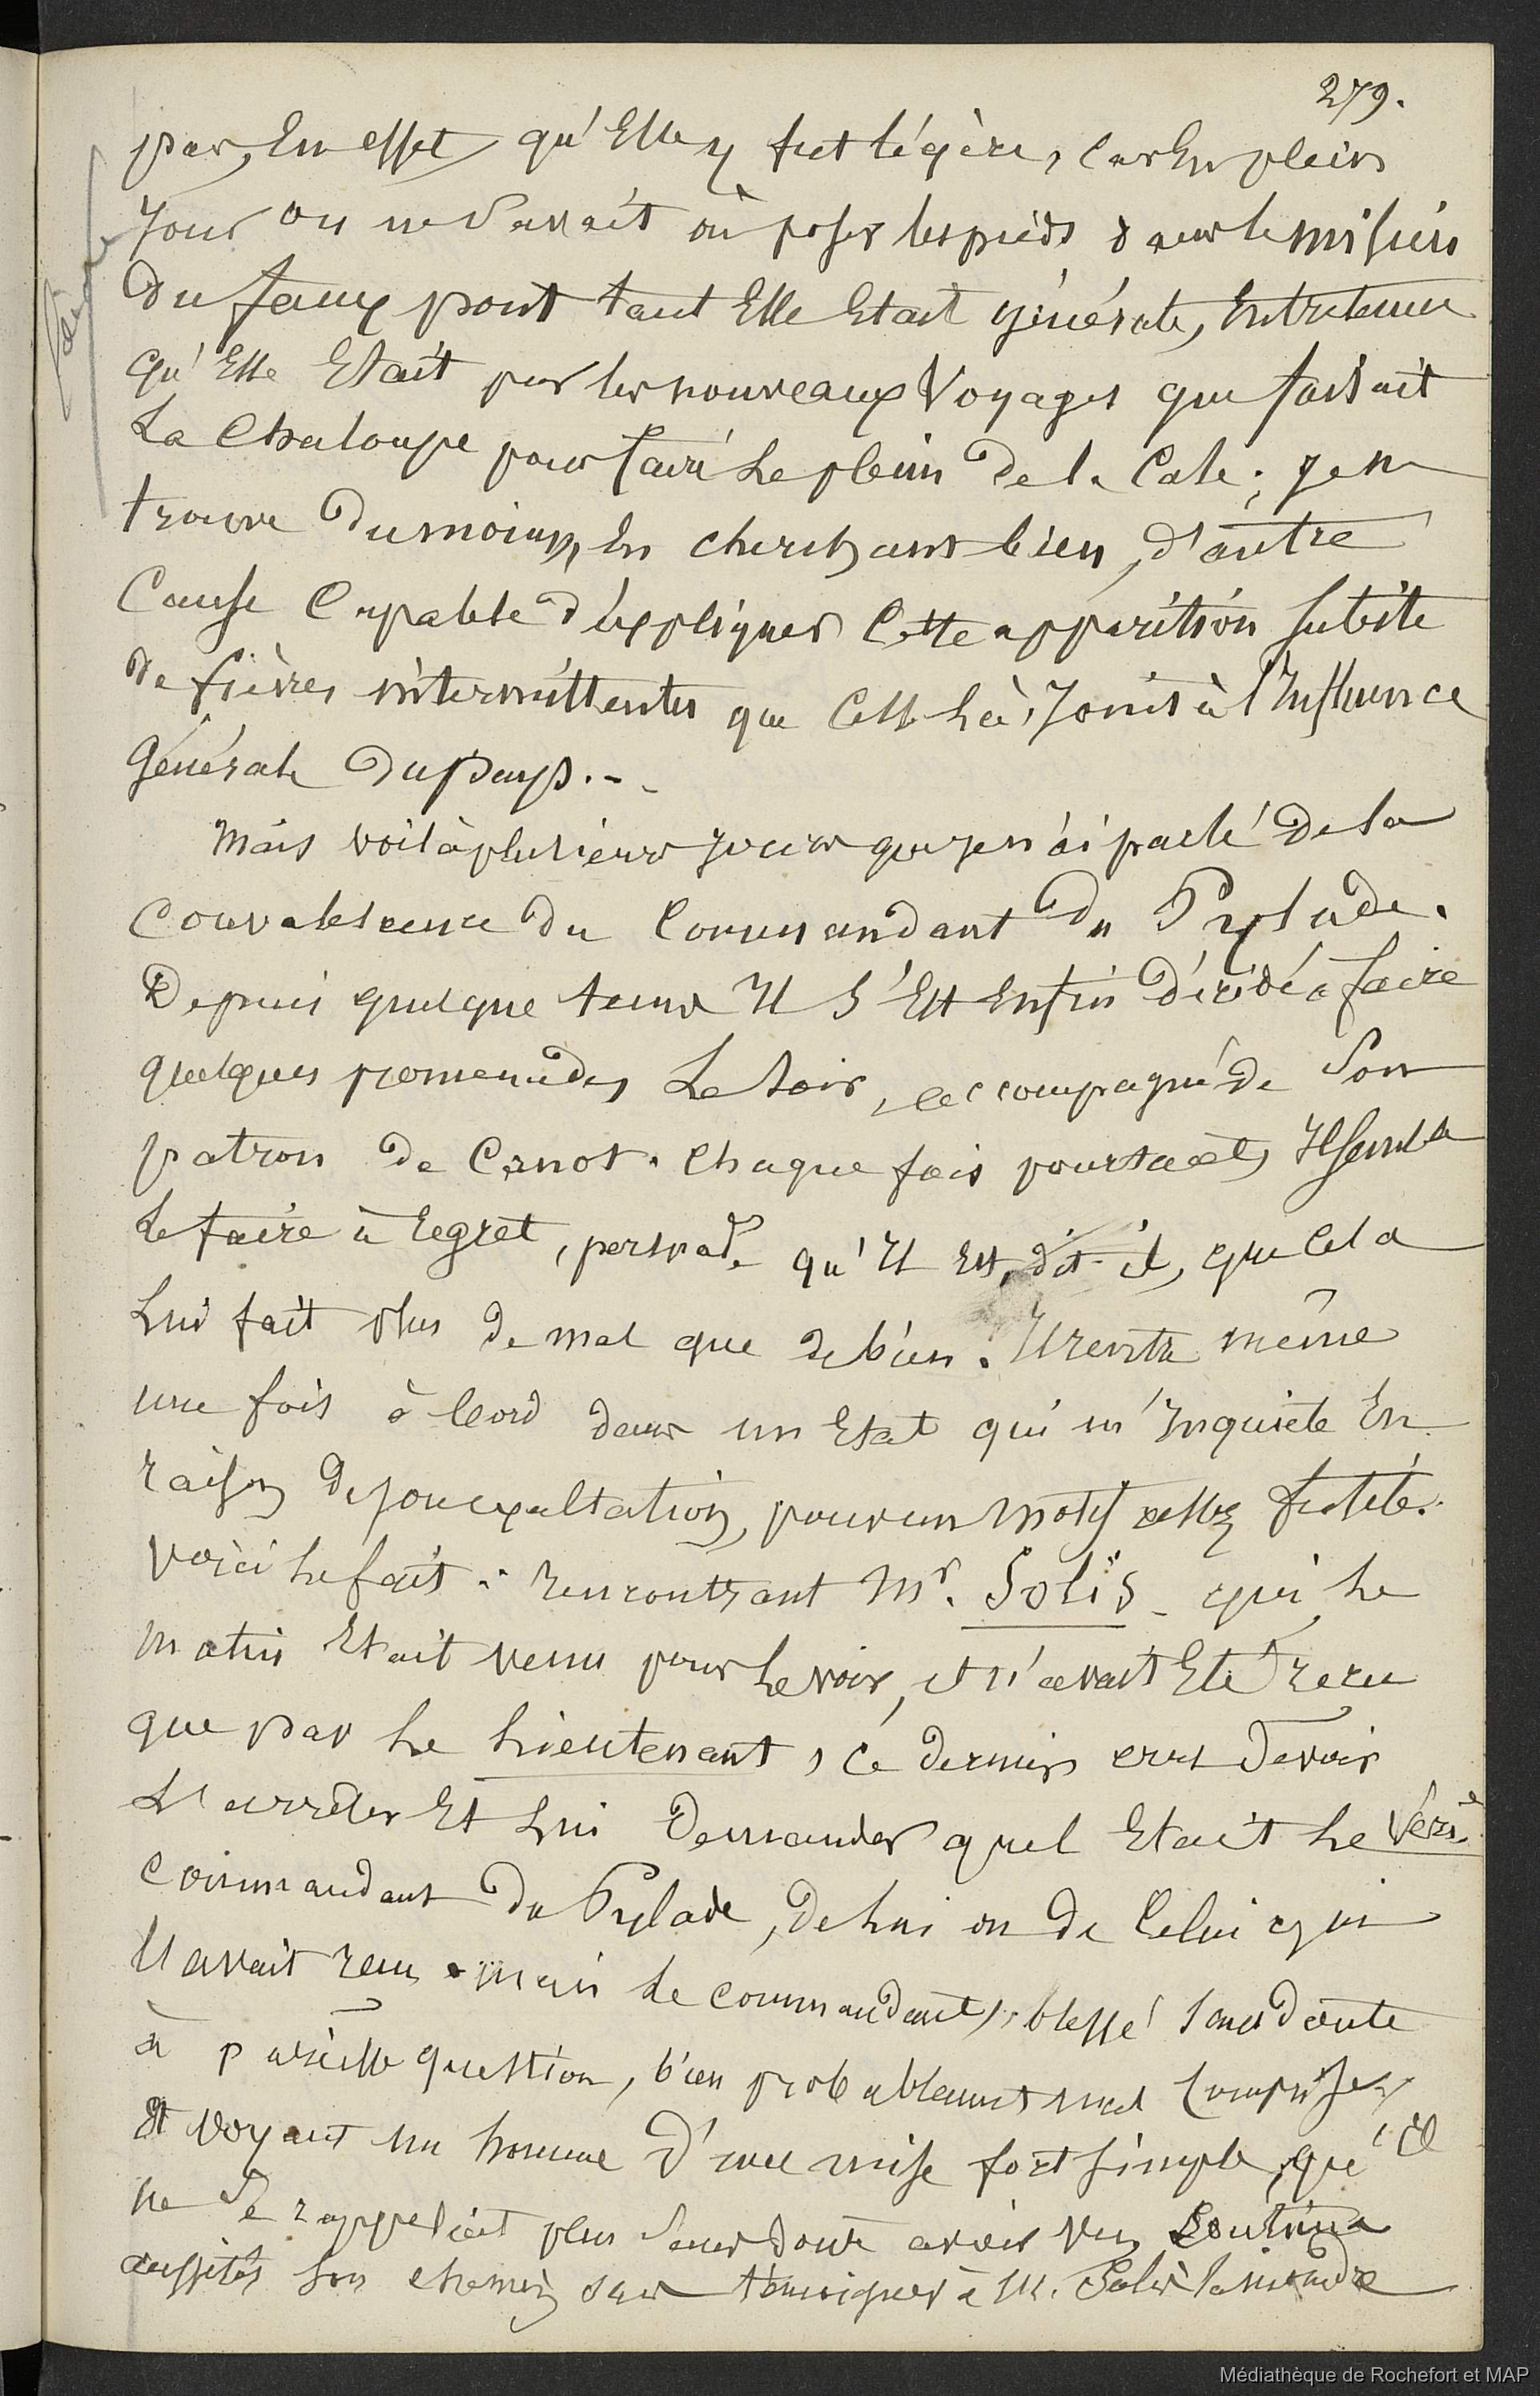 279.
pas, En effet, qu'Elle y fut légère, Car En plein
Jour on ne Savait où poser les pieds dans le milieu
Du faux pont tant Elle Etait générale, Entretenue
qu'Elle Etait par les nouveaux Voyages que faisait
La Chaloupe pour faire Le plein De la Cale; je ne
trouve Du moins, En cherchant bien, d'autre
Cause Capable d'Expliquer Cette apparition subite
De fièvres intermittentes que Celle là, Joint à l'Influence
Générale Du Pays. -
Mais voilà plusieurs jours que je n'ai parlé De la
Convalescence Du Commandant Du Pylade.
Depuis quelque tems Il S'Est Enfin Décidé à faire
quelques promenades Le Soir, accompagné De Son
patron De Canot. Chaque fois pourtant, Il semble
Le faire à regret, persuadé qu'Il Est, dit-il, que Cela
Lui fait plus De mal que de bien. Il rentra même
une fois à bord dans un Etat qui m'Inquiète En
raison De son exaltation, pour un motif assez futile.
Voici Le fait: rencontrant Mr. Solis - qui Le
matin Etait venu pour Le voir, et n'avait Eté reçu
que par Le Lieutenant, Ce dernier crut Devoir
L'arrêter Et Lui Demander quel Etait Le Véri.e
Commandant Du Pylade, De Lui ou De Celui qui
L'avait reçu. Mais Le Commandant, blessé sans doute
à pareille question, bien probablement mal Comprise,
Et voyant un homme D'une mise fort simple, qu'il
ne Se rappelait plus Sans doute avoir vu, Continua
aussitôt Son chemin sans témoigner à M. Solis la moindre
Médiathèque de Rochefort et MAP